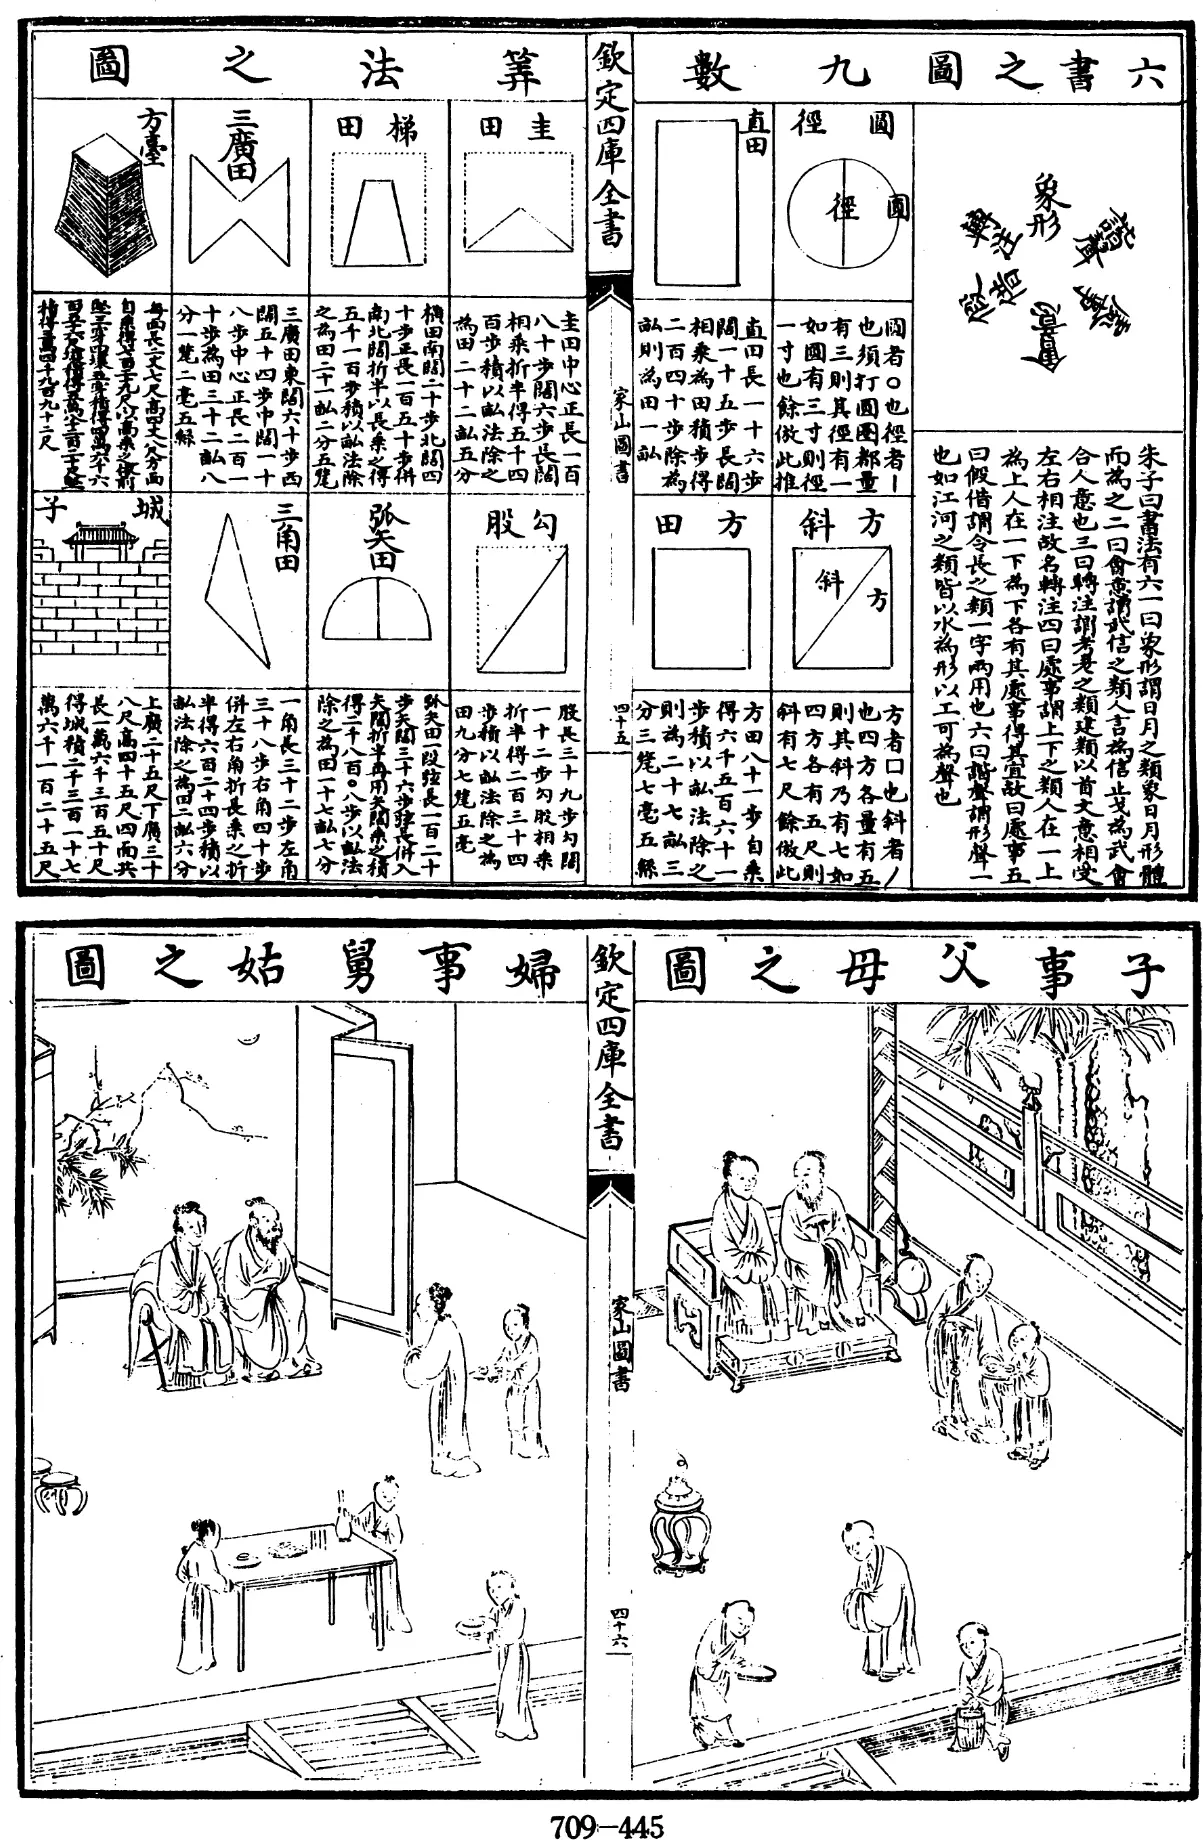 六書之圖
九數
象形
諧聲
處事
會意
假借
轉注
朱子曰書法有六一曰象形謂日月之類象日月形體
而為之二曰會意謂武信之類人言為信止戈為武會
合人意也三曰轉注謂考老之類建類以首文意相受
左右相注故名轉注四曰處事謂上下之類人在一上
為上人在一下為下各有其處事得其宜故曰處事五
曰假借謂令長之類一字兩用也六曰諧聲謂形聲一
也如江河之類皆以水為形以工可為聲也
圓徑
圓徑
圓者○也徑者丨
也須打圓圈都量
有三則其徑有一
如圓有三寸則徑
一寸也餘倣此推
直田
直田長一十六步
闊一十五步長闊
相乘為田積步得
二百四十步除為
畝則為田一畝
方斜
方
斜
方者口也斜者丿
也四方各量有五
則其斜乃有七如
四方各有五尺則
斜有七尺餘倣此
方田
方田八十一步自乘
得六千五百六十一
步積以畝法除之
則為二十七畝三
分三氂七毫五絲
欽定四庫全書
家山圖書
四十五
筭法之圖
圭田
圭田中心正長一百
八十步闊六步長闊
相乘折半得五千四
百步積以畝法除之
為田二十二畝五分
梯田
橫田南闊二十步北闊四
十步正長一百五十步併
南北闊折半以長乘之得
五千一百步積以畝法除
之為田二十一畝二分五氂
三廣田
三廣田東闊六十步西
闊五十四步中闊一十
八步中心正長二百一
十步為田三十二畝八
分一氂二毫五絲
方臺
每面長二丈七尺高四丈八尺方面
自乘得七百二十九尺以高乘之
四千九百九十二尺
勾股
股長三十九步勾闊
一十二步勾股相乘
折半得二百三十四
步積以畝法除之為
田九分七氂五毫
弧矢田
弧矢田一段弦長一百二十
步矢闊三十六步弦長併入
矢闊折半再用矢闊乘之積
得二千八百○八步以畝法
除之為田一十七畝七分
三角田
一角長三十二步左角
三十八步右角四十步
併左右角折長乘之折
半得六百二十四步積以
畝法除之為田二畝六分
城子
上廣二十五尺下廣三十
八尺高四十五尺四面共
長一萬六千三百五十尺
得城積二千三百一十七
萬六千一百二十五尺
子事父母之圖
欽定四庫全書
家山圖書
四十六
婦事舅姑之圖
709-445